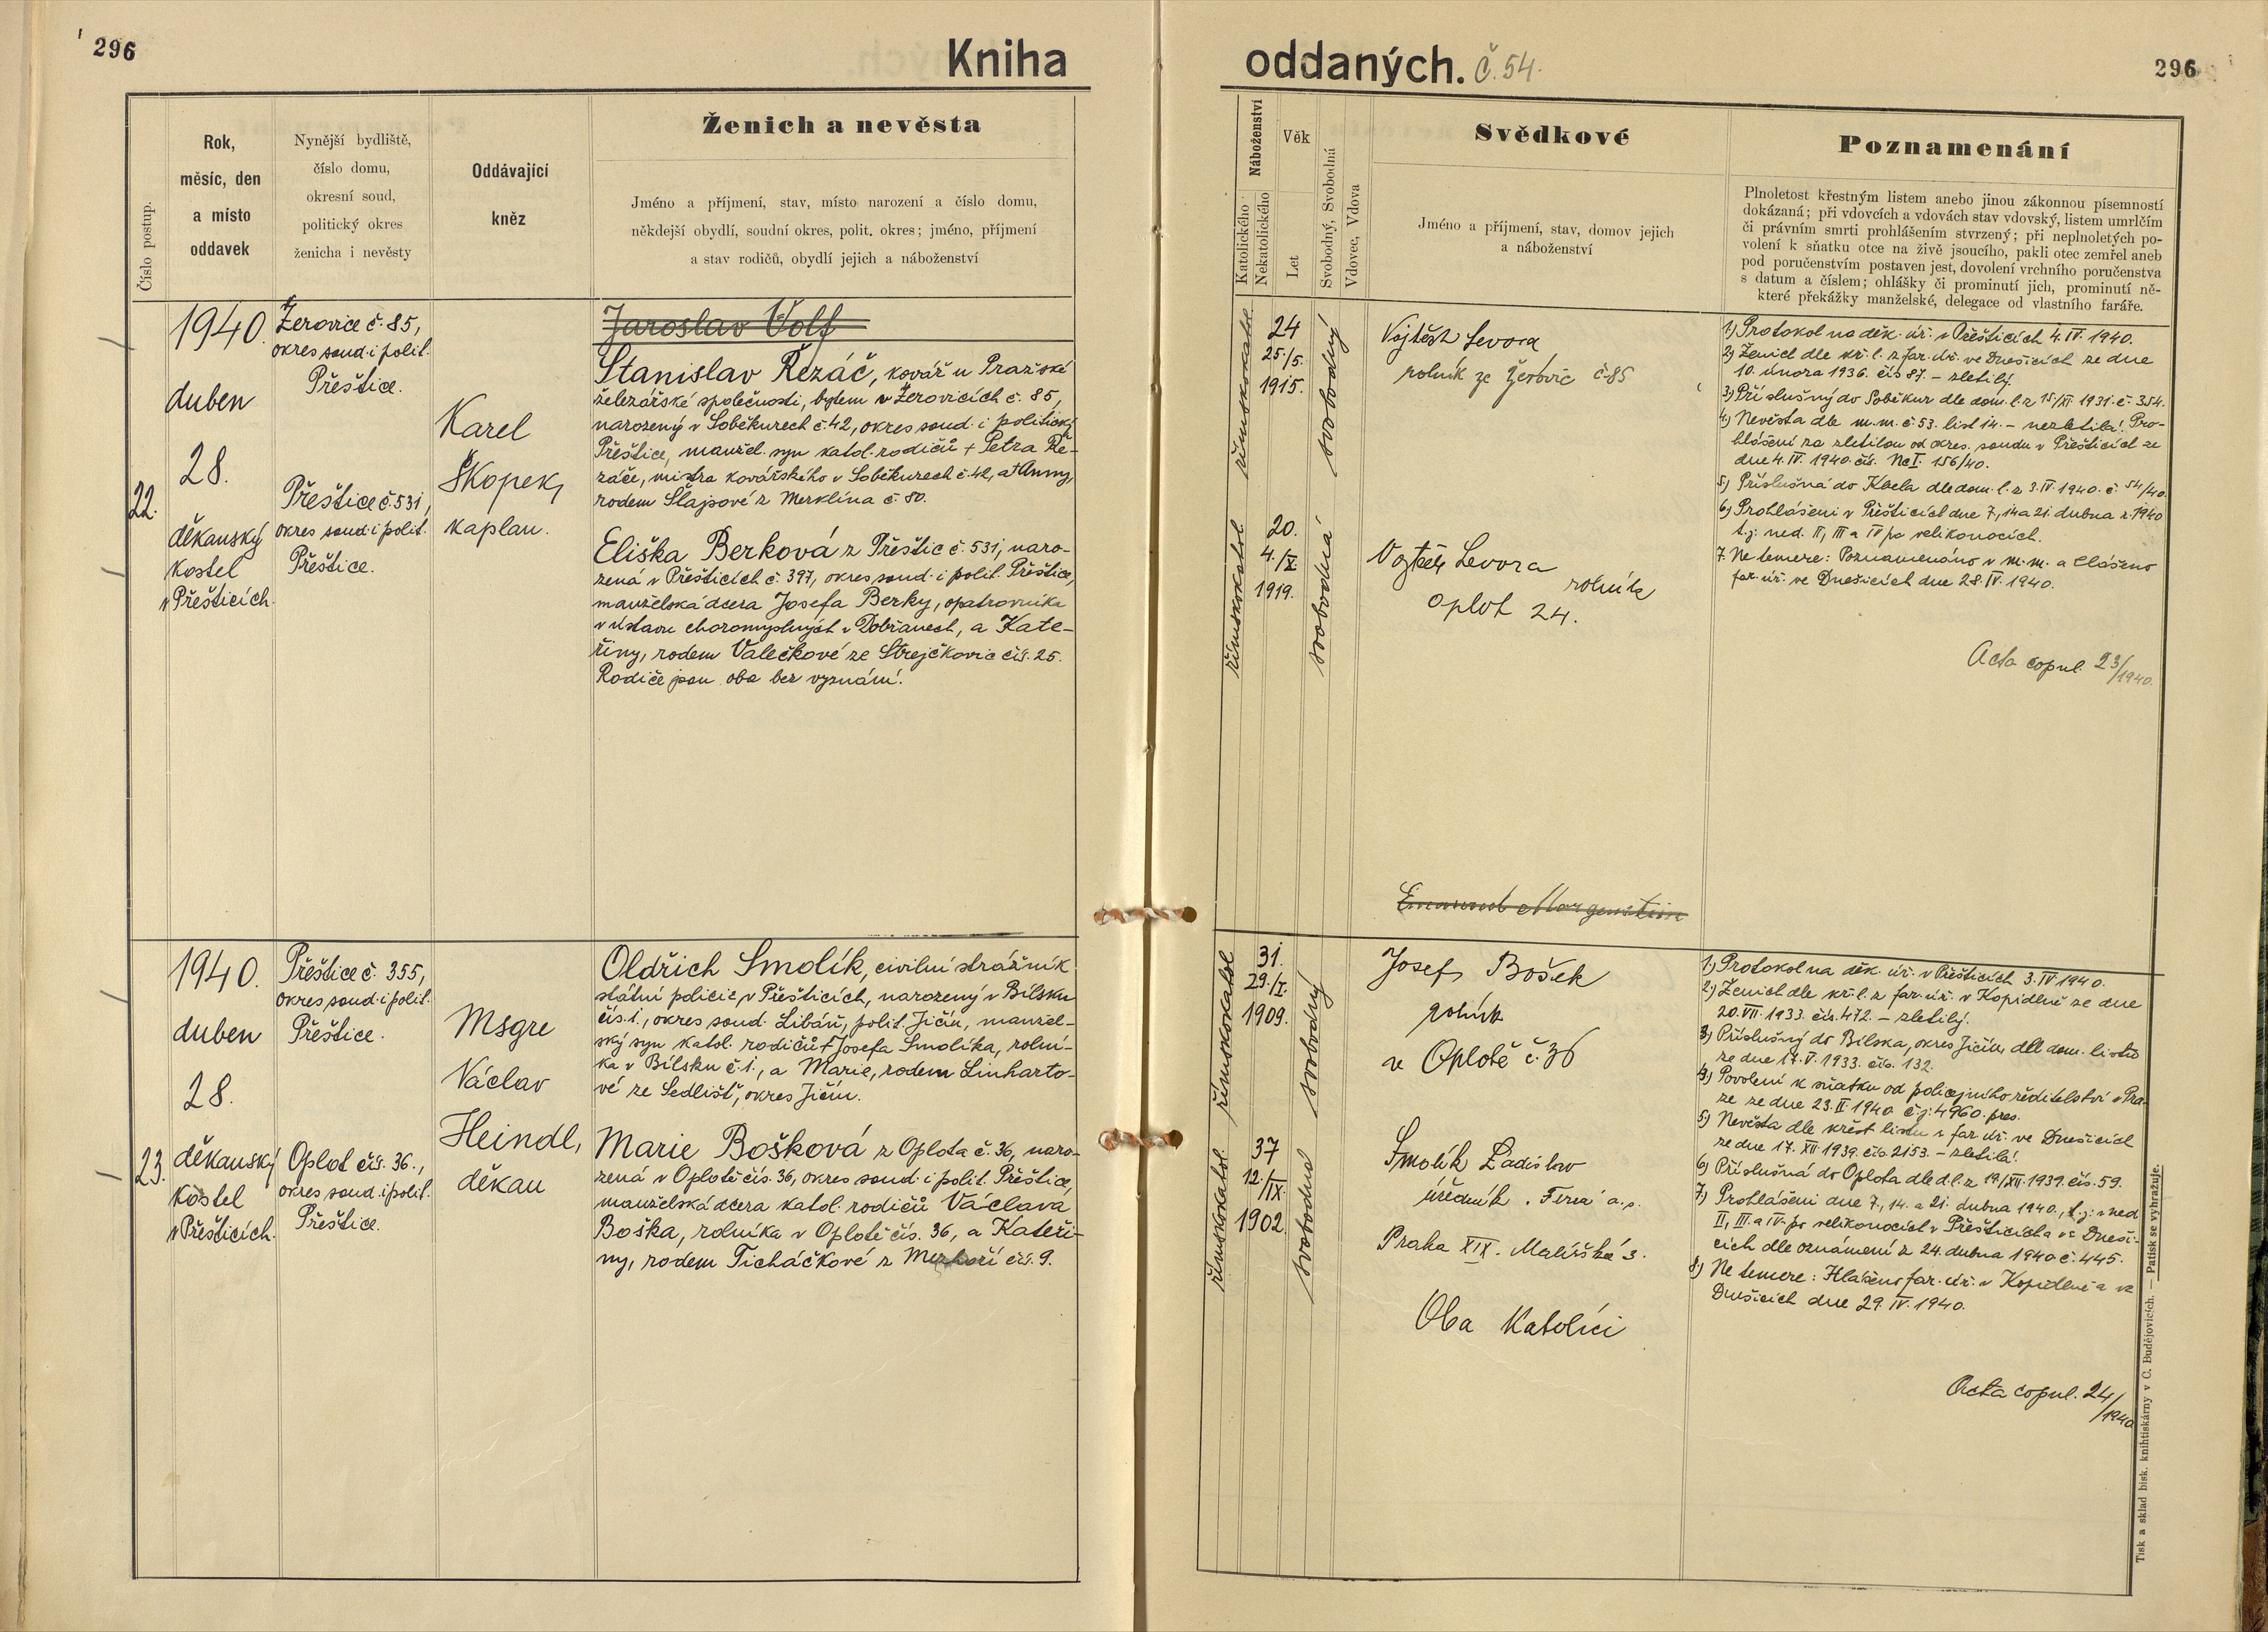 296
Kniha
oddaných. č. 54.
296
Číslo postup.
Rok,
měsíc, den
a místo
oddavek
Nynější bydliště,
číslo domu,
okresní soud,
politický okres
ženicha i nevěsty
Oddávající
kněz
Ženich a nevěsta
Jméno a příjmení, stav, místo narození a číslo domu,
někdejší obydlí, soudní okres, polit. okres; jméno, příjmení
a stav rodičů, obydlí jejich a náboženství
Náboženství
Katolického
Nekatolického
Věk
Let
Svobodný, Svobodná
Vdovec, Vdova
Svědkové
Jméno a příjmení, stav, domov jejich
a náboženství
Poznamenání
Plnoletost křestným listem anebo jinou zákonnou písemností
dokázaná; při vdovcích a vdovách stav vdovský, listem umrlčím
či právním smrti prohlášením stvrzený; při neplnoletých po-
volení k sňatku otce na živě jsoucího, pakli otec zemřel aneb
pod poručenstvím postaven jest, dovolení vrchního poručenstva
s datum a číslem; ohlášky či prominutí jich, prominutí ně-
které překážky manželské, delegace od vlastního faráře.
22.
1940.
duben
28.
děkanský
kostel
v Přešticích.
Žerovice č. 85,
okres soud. i polit.
Přeštice.
Přeštice č. 531,
okres soud. i polit.
Přeštice.
Karel
Skopek,
kaplan.
Jaroslav Volf
Stanislav Řezáč, kovář u Pražské
železářské společnosti, bytem v Žerovicích č. 85,
narozený v Soběkurech č. 42, okres soud. i politický
Přeštice, manžel. syn katol. rodičů + Petra Ře-
záče, mistra kovářského v Soběkurech č. 42, a + Anny,
rodem Šlajsové z Merklína č. 80.
Eliška Berková z Přeštic č. 531, naro-
zená v Přešticích č. 397, okres soud. i polit. Přeštice,
manželská dcera Josefa Berky, opatrovníka
v ústavu choromyslných v Dobřanech, a Kate-
řiny, rodem Valečkové ze Strejčkovic čís. 25.
Rodiče jsou oba bez vyznání.
římskokatol.
24
25./5.
1915.
svobodný
římskokatol.
20.
4./X.
1919.
svobodná
Vojtěch Levora
rolník ze Žerovic č 85
Vojtěch Levora
rolník
Oplot 24.
Emanuel Morgenstern
1) Protokol na děk. úř. v Přešticích 4. IV. 1940.
2) Ženich dle kř. l. z far. úř. ve Dnešicích ze dne
10. února 1936. čís 87. – zletilý.
3) Příslušný do Soběkur dle dom. l. z 15/XI 1931. č. 354.
4) Nevěsta dle m. m. č. 53. list 14. – nezletilá. Pro-
hlášení za zletilou od okres. soudu v Přešticích ze
dne 4. IV. 1940. čís. Nc I. 156/40.
5) Příslušná do Kbela dle dom. l. z 3. IV. 1940. č. 54/40.
6) Prohlášeni v Přešticích dne 7, 14 a 21. dubna r. 1940
t. j. ned. II, III a IV po velikonocích.
7. Ne temere: Poznamenáno v m. m. a hlášeno
far. úř. ve Dnešicích dne 28. IV. 1940.
Acta copul. 23/1940.
23.
1940.
duben
28.
děkanský
kostel
v Přešticích.
Přeštice č. 355,
okres soud. i polit.
Přeštice.
Oplot čís. 36.,
okres soud. i polit.
Přeštice.
Msgre
Václav
Heindl,
děkan
Oldřich Smolík, civilní strážník
státní policie v Přešticích, narozený v Bílsku
čís. 1., okres soud. Libáň, polit. Jičín, manžel-
ský syn katol. rodičů + Josefa Smolíka, rolní-
ka v Bílsku č. 1., a Marie, rodem Linharto-
vé ze Sedlišť, okres Jičín.
Marie Bošková z Oplota č. 36, naro-
zená v Oplotě čís. 36, okres soud. i polit. Přeštice,
manželská dcera katol. rodičů Václava
Boška, rolníka v Oplotě čís. 36, a Kateři-
ny, rodem Ticháčkové z čís. 9.
římskokatol.
31.
29./I.
1909.
svobodný
římskokatol.
37
12./IX.
1902.
svobodná
Josef Bošek
rolník
ve Oplotě č. 36
Smolík Ladislav
úředník . a. s.
Praha XIX. 3.
Oba katolíci
1) Protokol na děk. úř. v Přešticích 3. IV 1940.
2) Ženich dle kř. l. z far. úř. v Kopidlně ze dne
20. VII. 1933. čís. 472. – zletilý.
3) Příslušný do Bílska, okres Jičín, dle dom. listu
ze dne 17. V. 1933. čís. 132.
4) Povolení k sňatku od policejního ředitelství v Pra-
ze ze dne 23. II 1940. č. j. 4960. pres.
5) Nevěsta dle křest. listu z far. úř. ve Dnešicích
ze dne 17. XII 1939. čís. 2153. – zletilá.
6) Příslušná do Oplota dle d. l. z 19/XII. 1939. čís. 59.
7) Prohlášeni dne 7., 14. a 21. dubna 1940., t. j. v ned
II, III. a IV. po velikonocích v Přešticích a ve Dneši-
cích dle oznámení z 24. dubna 1940 č. 445.
8) Ne temere: Hlášeno far. úř. v Kopidlně a ve
Dnešicích dne 29. IV. 1940.
Acta copul. 24/1940
Tisk a sklad bisk. knihtiskárny v Č. Budějovicích. — Patisk se vyhražuje.